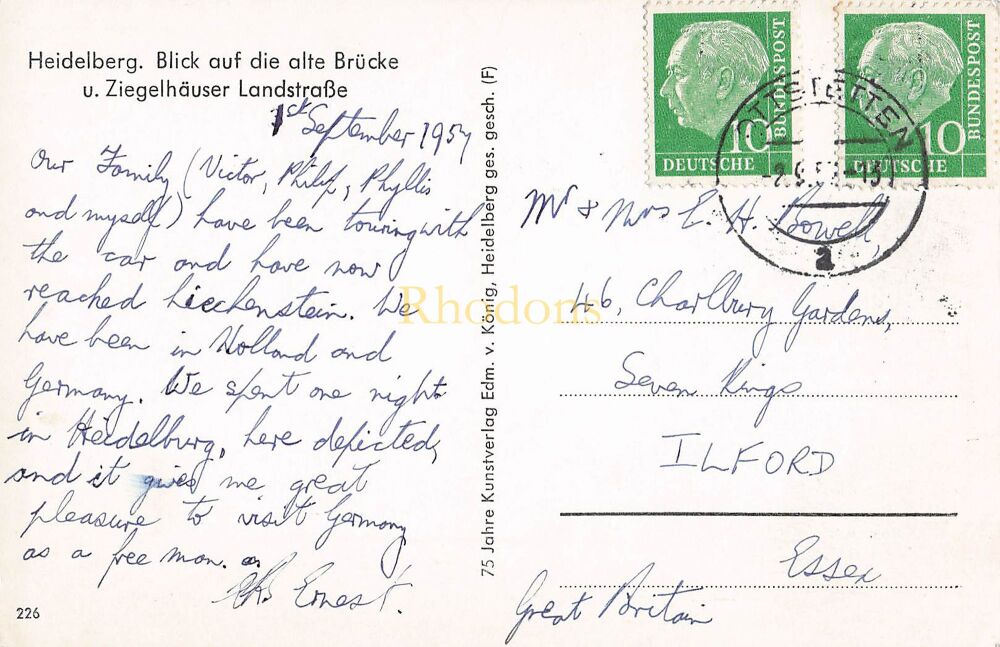 Heidelberg. Blick auf die alte Brücke
u. Ziegelhäuser Landstraße
1st September 1957
Our Family (Victor, Philip, Phyllis
and myself) have been touring with
the car and have now
reached Liechenstein. We
have been in Holland and
Germany. We spent one night
in Heidelburg, here depicted,
and it gives me great
pleasure to visit Germany
as a free man.
Ernest.
226
75 Jahre Kunstverlag Edm. v. König, Heidelberg ges. gesch. (F)
10
DEUTSCHE
BUNDESPOST
10
DEUTSCHE
BUNDESPOST
OTTSTETTEN
a
Mr & Mrs E. H. Bowell,
46, Charlbury Gardens,
Seven Kings
ILFORD
Essex
Great Britain
Rhodons